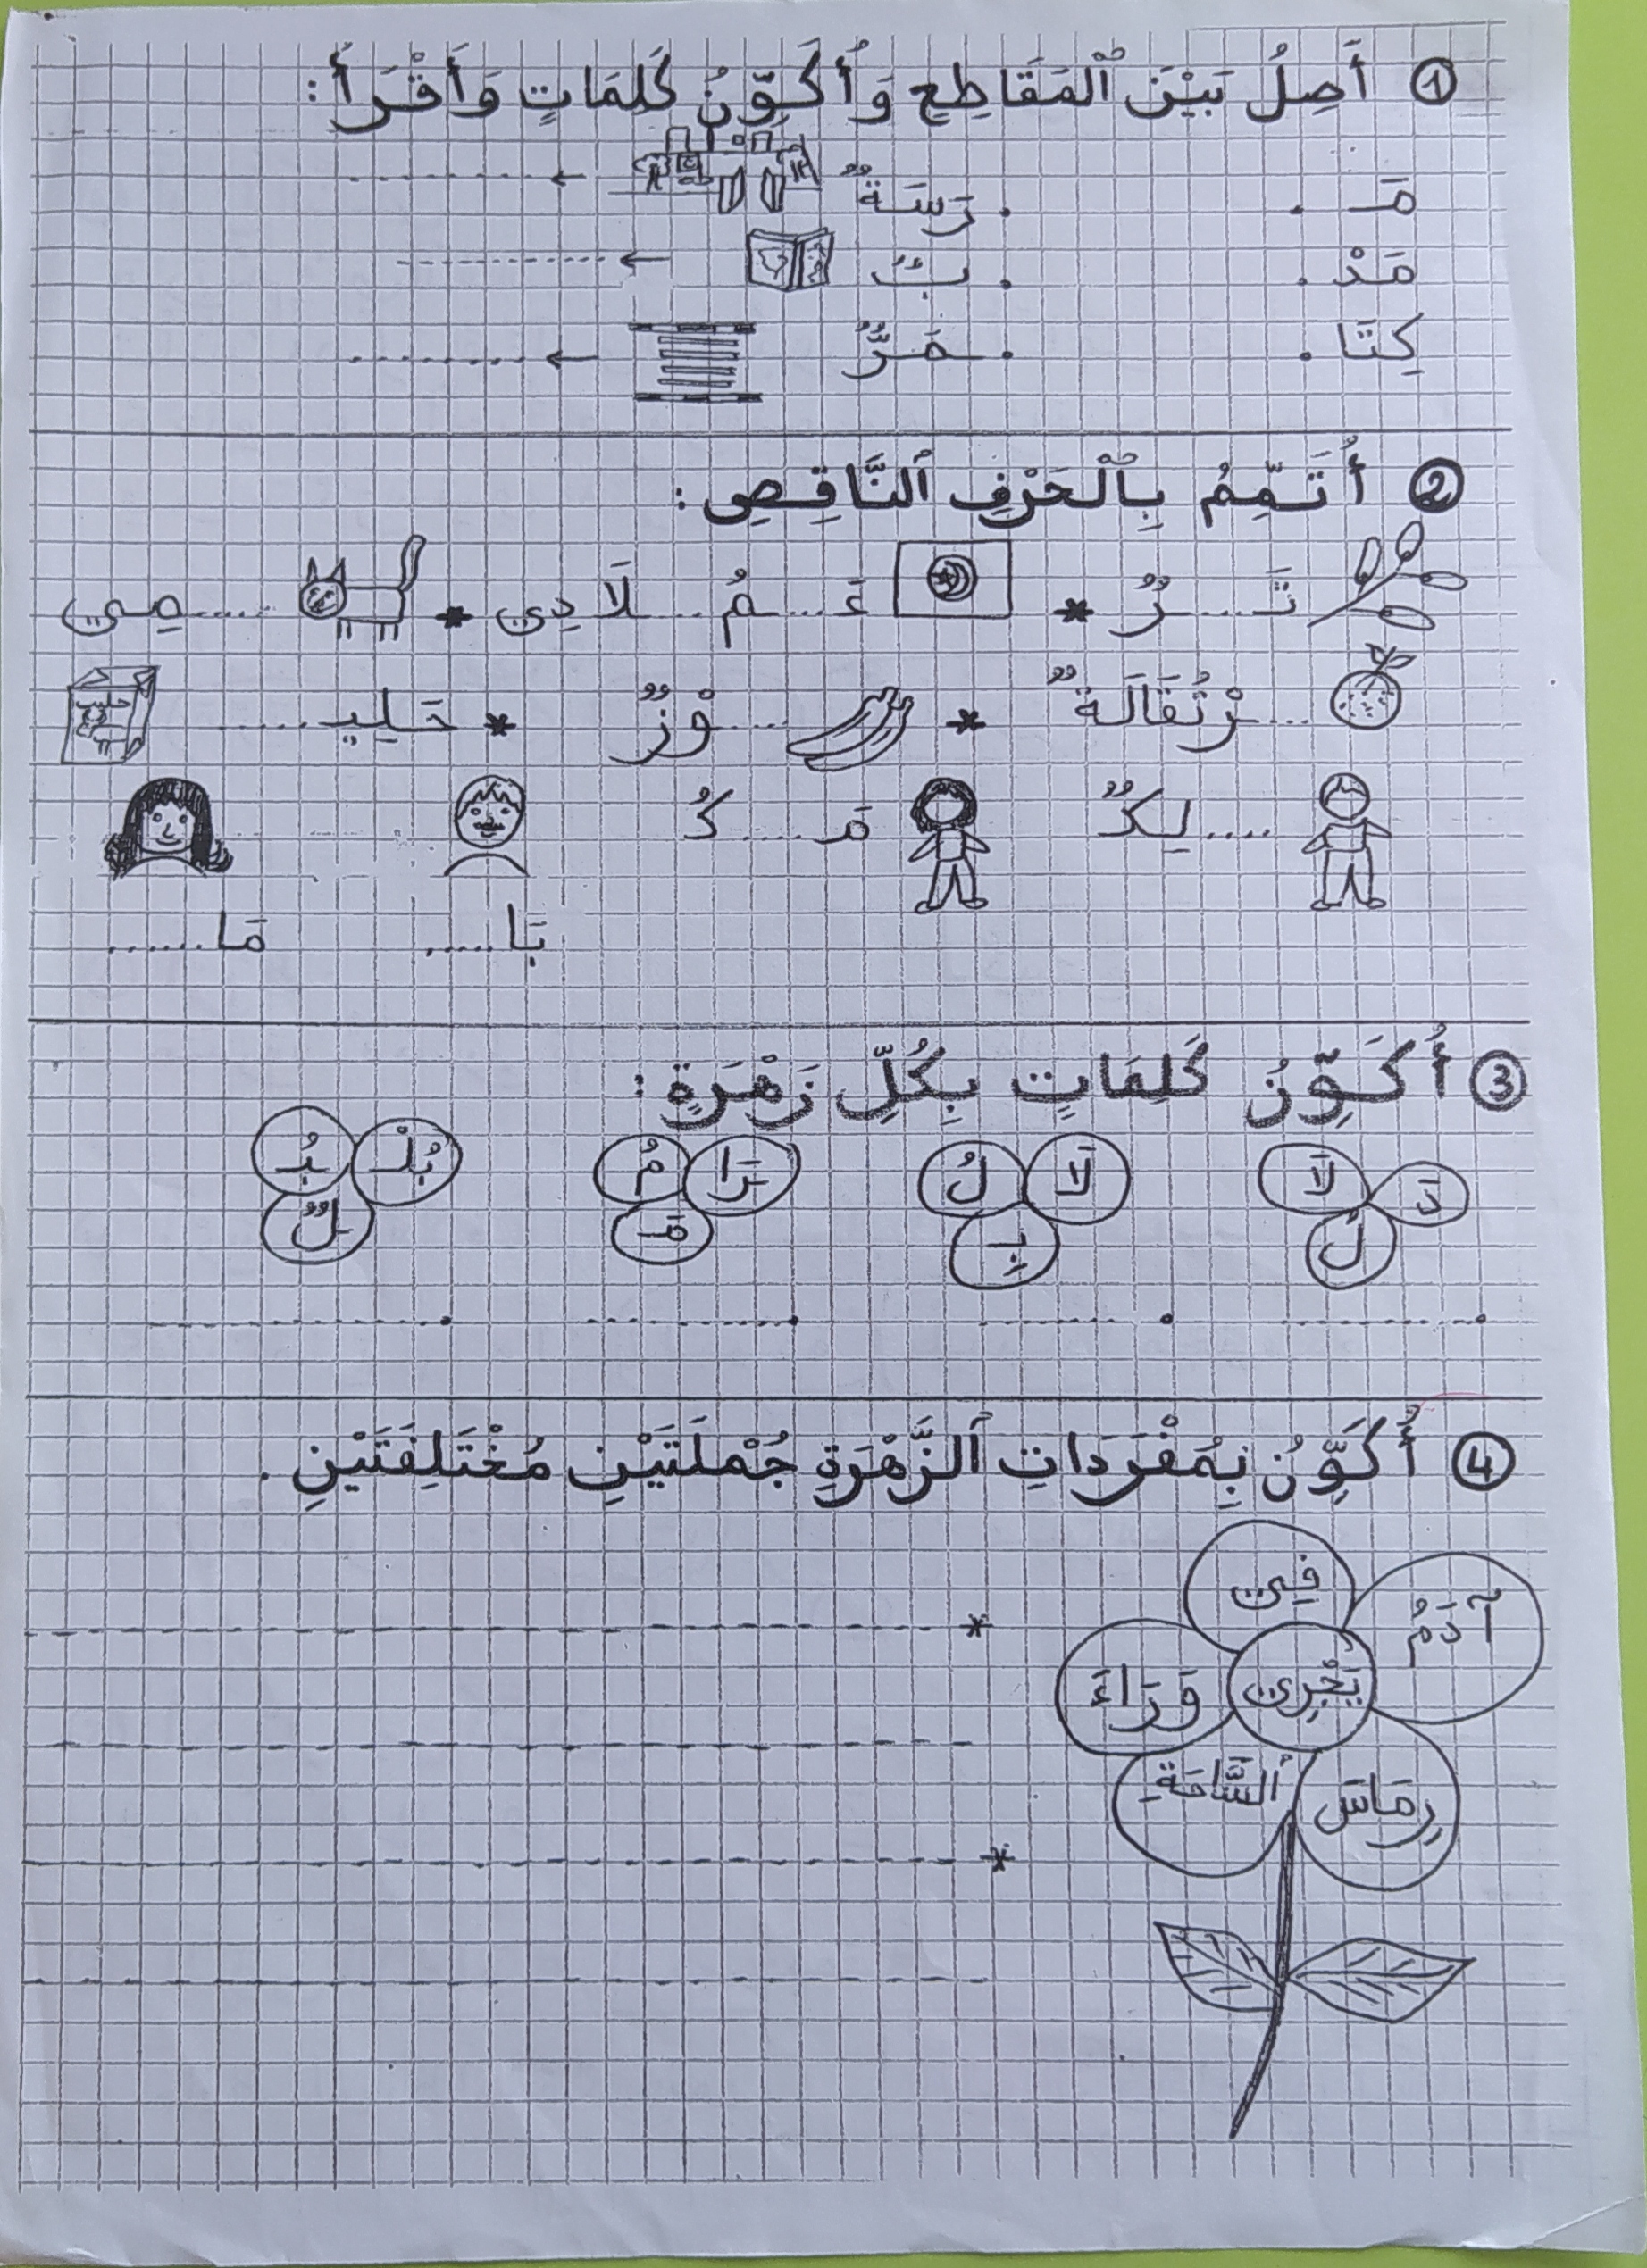 ① أَصِلُ بَيْنَ ٱلْمَقَاطِعِ وَأُكَوِّنُ كَلِمَاتٍ وَأَقْرَأُ :
مَـ . . رَسَةٌ ← ..........
مَدْ . . بٌ ← ..........
كِتَا . . ـمَرٌّ ← ..........
② أُتَمِّمُ بِٱلْحَرْفِ ٱلنَّاقِصِ :
تَـ.....ـرٌ * عَـ.....ـمُ .....لَادِي * .....ـمِي
.....ـرْتُقَالَةٌ * .....ـوْزٌ * حَلِيـ.....
.....لِكٌ مَر.....ـمُ
بَا..... مَا.....
③ أُكَوِّنُ كَلِمَاتٍ بِكُلِّ زَهْرَةٍ :
لَا دَ لُ
لُ لَا بِـ
مُ ـرَا مَـ
ـبُـ بُلْـ ـلٌ
④ أُكَوِّنُ بِمُفْرَدَاتِ ٱلزَّهْرَةِ جُمْلَتَيْنِ مُخْتَلِفَتَيْنِ .
فِي
آدَمُ
وَرَاءَ يَجْرِي
ٱلسَّاحَةِ
رِمَاسَ